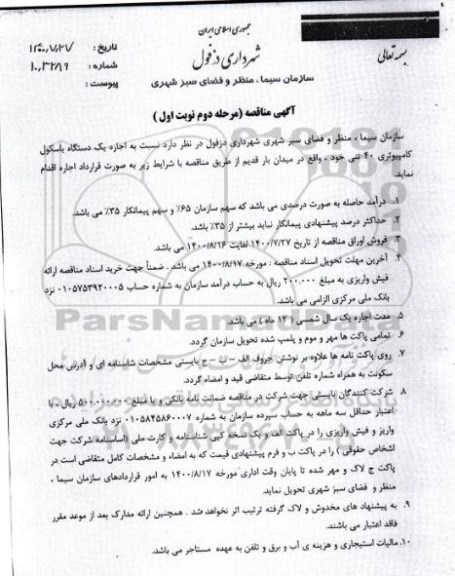 جمهوری اسلامی ایران
بسمه تعالی
شهرداری دزفول
سازمان سیما ، منظر و فضای سبز شهری
تاریخ : ۱۴۰۰/۷/۲۷
شماره : ۱۰۰۳۲۸۹
پیوست :
آگهی مناقصه (مرحله دوم نوبت اول )
سازمان سیما ، منظر و فضای سبز شهری شهرداری دزفول در نظر دارد نسبت به اجاره یک دستگاه باسکول
کامپیوتری ۴۰ تنی خود ، واقع در میدان بار قدیم از طریق مناقصه با شرایط زیر به صورت قرارداد اجاره اقدام
نماید.
۱. درآمد حاصله به صورت درصدی می باشد که سهم سازمان ۶۵٪ و سهم پیمانکار ۳۵٪ می باشد.
۲. حداکثر درصد پیشنهادی پیمانکار نباید بیشتر از ۳۵٪ باشد.
۳. فروش اوراق مناقصه از تاریخ ۱۴۰۰/۷/۲۷ لغایت ۱۴۰۰/۸/۱۶ می باشد.
۴. آخرین مهلت تحویل اسناد مناقصه : مورخه ۱۴۰۰/۸/۱۷ می باشد . ضمناً جهت خرید اسناد مناقصه ارائه
فیش واریزی به مبلغ ۲۰۰.۰۰۰ ریال به حساب درآمد سازمان به شماره حساب ۰۱۰۵۷۵۳۹۲۰۰۰۵ نزد
بانک ملی مرکزی الزامی می باشد.
۵. مدت اجاره یک سال شمسی ( ۱۲ ماه ) می باشد.
۶. تمامی پاکت ها مهر و موم و پلمپ شده تحویل سازمان گردد.
۷. روی پاکت نامه ها علاوه بر نوشتن حروف الف – ب – ج بایستی مشخصات شناسنامه ای و آدرس محل
سکونت به همراه شماره تلفن توسط متقاضی قید و امضاء گردد.
۸. شرکت کنندگان بایستی جهت شرکت در مناقصه ضمانت نامه بانکی و یا مبلغ ۵۰.۰۰۰.۰۰۰ ریال ، با
اعتبار حداقل سه ماهه به حساب سپرده سازمان به شماره ۰۱۰۵۸۴۵۸۶۰۰۰۷ نزد بانک ملی مرکزی
واریز و فیش واریزی را در پاکت الف و یک نسخه کپی شناسنامه و کارت ملی (اساسنامه شرکت جهت
اشخاص حقوقی ) را در پاکت ب و فرم پیشنهادی قیمت که به امضاء و مشخصات کامل متقاضی است در
پاکت ج لاک و مهر شده تا پایان وقت اداری مورخه ۱۴۰۰/۸/۱۷ به امور قراردادهای سازمان سیما ،
منظر و فضای سبز شهری تحویل نماید.
۹. به پیشنهاد های مخدوش و لاک گرفته ترتیب اثر نخواهد شد . همچنین ارائه مدارک بعد از موعد مقرر
فاقد اعتبار می باشند.
۱۰. مالیات استیجاری و هزینه ی آب و برق و تلفن به عهده مستاجر می باشد.
ParsNamadData